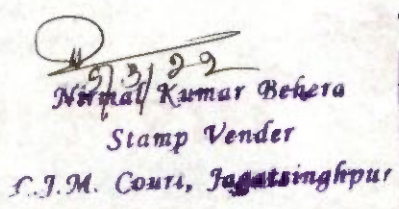 5/3/22
Nirmal Kumar Behera
Stamp Vender
C.J.M. Court, Jagatsinghpur